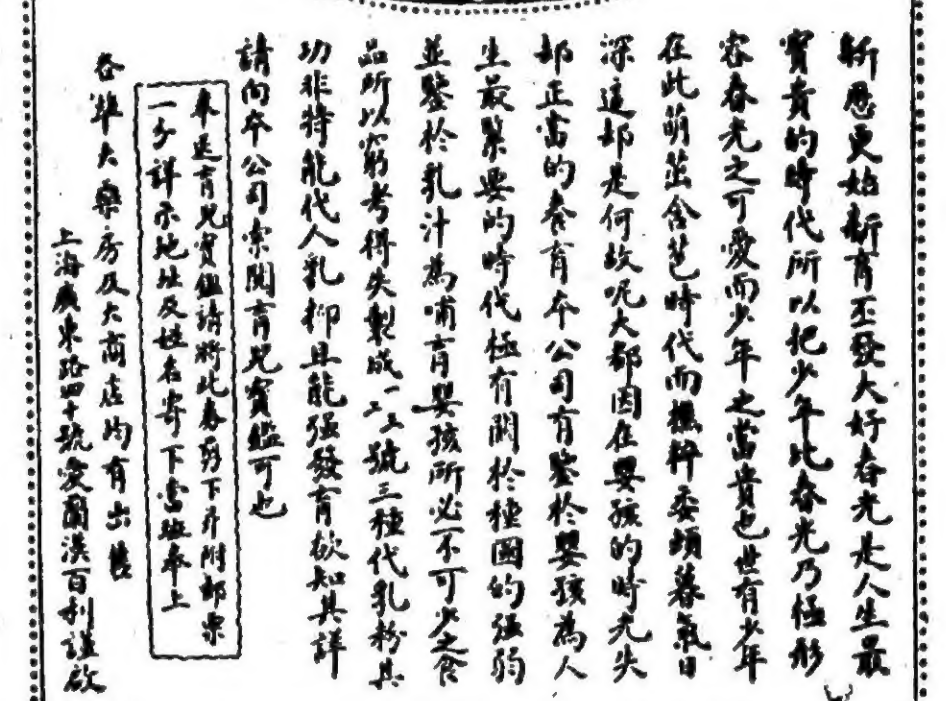 斬思更始新育丕發大好春光是人生最
寶貴的時代所以把少年比春光乃極形
容春光之可愛而少年之當貴也世有少年
在此萌茁含苞時代而憔悴委頓暮氣日
深這却是何故呢大都因在嬰孩的時光失
却正當的養育本公司有鑒於嬰孩為人
生最緊要的時代極有關於種國的强弱
並鑒於乳汁為哺育嬰孩所必不可少之食
品所以窮考得失製成一二三號三種代乳粉其
功非特能代人乳抑且能强發育欲知其詳
請向本公司索閱育兒寳鑑可也
奉送育兒寳鑑請將此券剪下并附郵票
一分詳示地址及姓名寄下當班奉上
各埠大藥房及大商店均有出售
上海廣東路四十號愛蘭漢百利謹啟